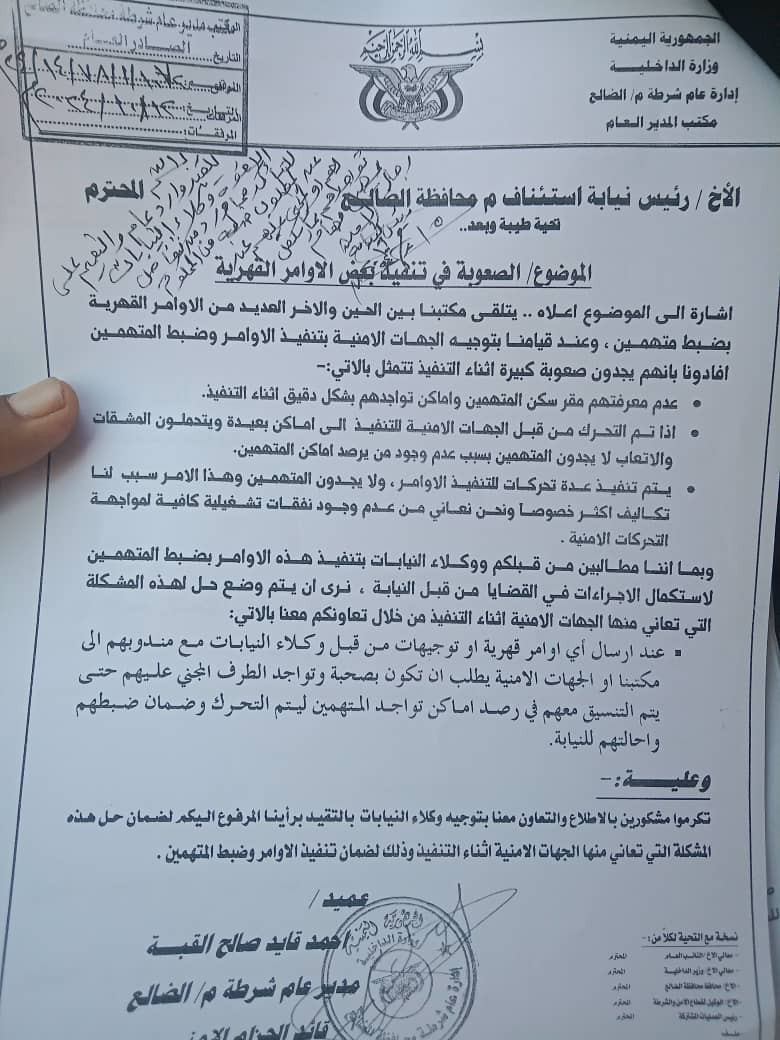 بسم الله الرحمن الرحيم
الجمهورية اليمنية
وزارة الداخليـــة
إدارة عام شرطة م/ الضالع
مكتب المدير العـام
مكتب مدير عام شرطة
الصادر العـــام
التاريخ:
المرفقات:
الأخ / رئيس نيابة استئناف م محافظة الضالـع المحترم
تحية طيبة وبعد..
الموضوع/ الصعوبة في تنفيذ بعض الاوامر القهرية
اشارة الى الموضوع اعلاه .. يتلقى مكتبنا بين الحين والاخر العديد من الاوامر القهرية
بضبط متهمين ، وعند قيامنا بتوجيه الجهات الامنية بتنفيذ الاوامر وضبط المتهمين
افادونا بانهم يجدون صعوبة كبيرة اثناء التنفيذ تتمثل بالاتي:-
• عدم معرفتهم مقر سكن المتهمين واماكن تواجدهم بشكل دقيق اثناء التنفيذ.
• اذا تم التحرك من قبل الجهات الامنية للتنفيذ الى اماكن بعيدة ويتحملون المشقات
والاتعاب لا يجدون المتهمين بسبب عدم وجود من يرصد اماكن المتهمين.
• يتم تنفيذ عدة تحركات للتنفيذ الاوامر، ولا يجدون المتهمين وهذا الامر سبب لنا
تكاليف اكثر خصوصاً ونحن نعاني من عدم وجود نفقات تشغيلية كافية لمواجهة
التحركات الامنية .
وبما اننا مطالبين من قبلكم ووكلاء النيابات بتنفيذ هذه الاوامر بضبط المتهمين
لاستكمال الاجراءات في القضايا من قبل النيابة ، نرى ان يتم وضع حل لهذه المشكلة
التي تعاني منها الجهات الامنية اثناء التنفيذ من خلال تعاونكم معنا بالاتي:
▪ عند ارسال أي اوامر قهرية او توجيهات من قبل وكلاء النيابات مع مندوبهم الى
مكتبنا او الجهات الامنية يطلب ان تكون بصحبة وتواجد الطرف المجني عليهم حتى
يتم التنسيق معهم في رصد اماكن تواجد المتهمين ليتم التحرك وضمان ضبطهم
واحالتهم للنيابة.
وعليـــة:-
تكرموا مشكورين بالاطلاع والتعاون معنا بتوجيه وكلاء النيابات بالتقيد برأينا المرفوع اليكم لضمان حل هذه
المشكلة التي تعاني منها الجهات الامنية اثناء التنفيذ وذلك لضمان تنفيذ الاوامر وضبط المتهمين .
عميد/
احمد قايد صالح القبة
مدير عام شرطة م/ الضالع
قائد الحزام الامني
نسخة مع التحية لكلاً من:-
- معالي الاخ/ النائب العام المحترم
- معالي الاخ/ وزير الداخلية المحترم
- الاخ/ محافظ محافظة الضالع المحترم
- الاخ/ الوكيل لقطاع الامن والشرطة المحترم
- رئيس العمليات المشتركة المحترم
- ملف